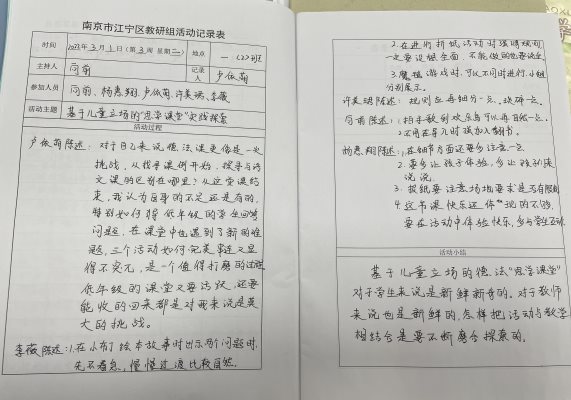 南京市江宁区教研组活动记录表
时间 2023年3月1日(第3周 星期三) 地点 一(2)班
主持人 闵前 记录人 卢依萌
参加人员 闵前、杨惠翔、卢依萌、许美瑞、李薇
活动主题 基于儿童立场的“思学课堂”实践探索
活动过程
卢依萌陈述:对于自己来说德法课更像是一次
挑战,从找寻课例开始,探寻与语
文课的区别在哪里?从这堂课结
束,我认为自身的不足还是有的,
特别如何将低年级的学生回答
问题,在课堂中也遇到了新的难
题,三个活动如何完美串连又显
得不突兀,是一个值得打磨的过程
低年级的课堂又要活跃,还要
能收的回来都是对我来说是莫
大的挑战。
李薇陈述:1.在小布丁绘本故事时出示两个问题时,
先不着急,慢慢过渡比较自然。
2.在进行折纸活动时强调规则
一定要说细全面,不能做的也要说
3.魔棍游戏时,可以不同时进行,小组
分别展示。
许美瑞陈述:规则应再细分一点、琐碎一点。
闵前陈述:1.拍手歌到欢乐岛可以再自然一点。
杨惠翔陈述:1.在细节方面还要多注意一点
2.要多让孩子体验,多让孩子来
说说。
3.报纸要注意场地要求是否有限制
4.这节课快乐还体现的不够,
要在活动中体验快乐,多与学生互动
活动小结
基于儿童立场的德法“思学课堂”
对于学生来说是新鲜新奇的。对于教师
来说也是新鲜的,怎样把活动与教学
相结合是要不断磨合探索的。